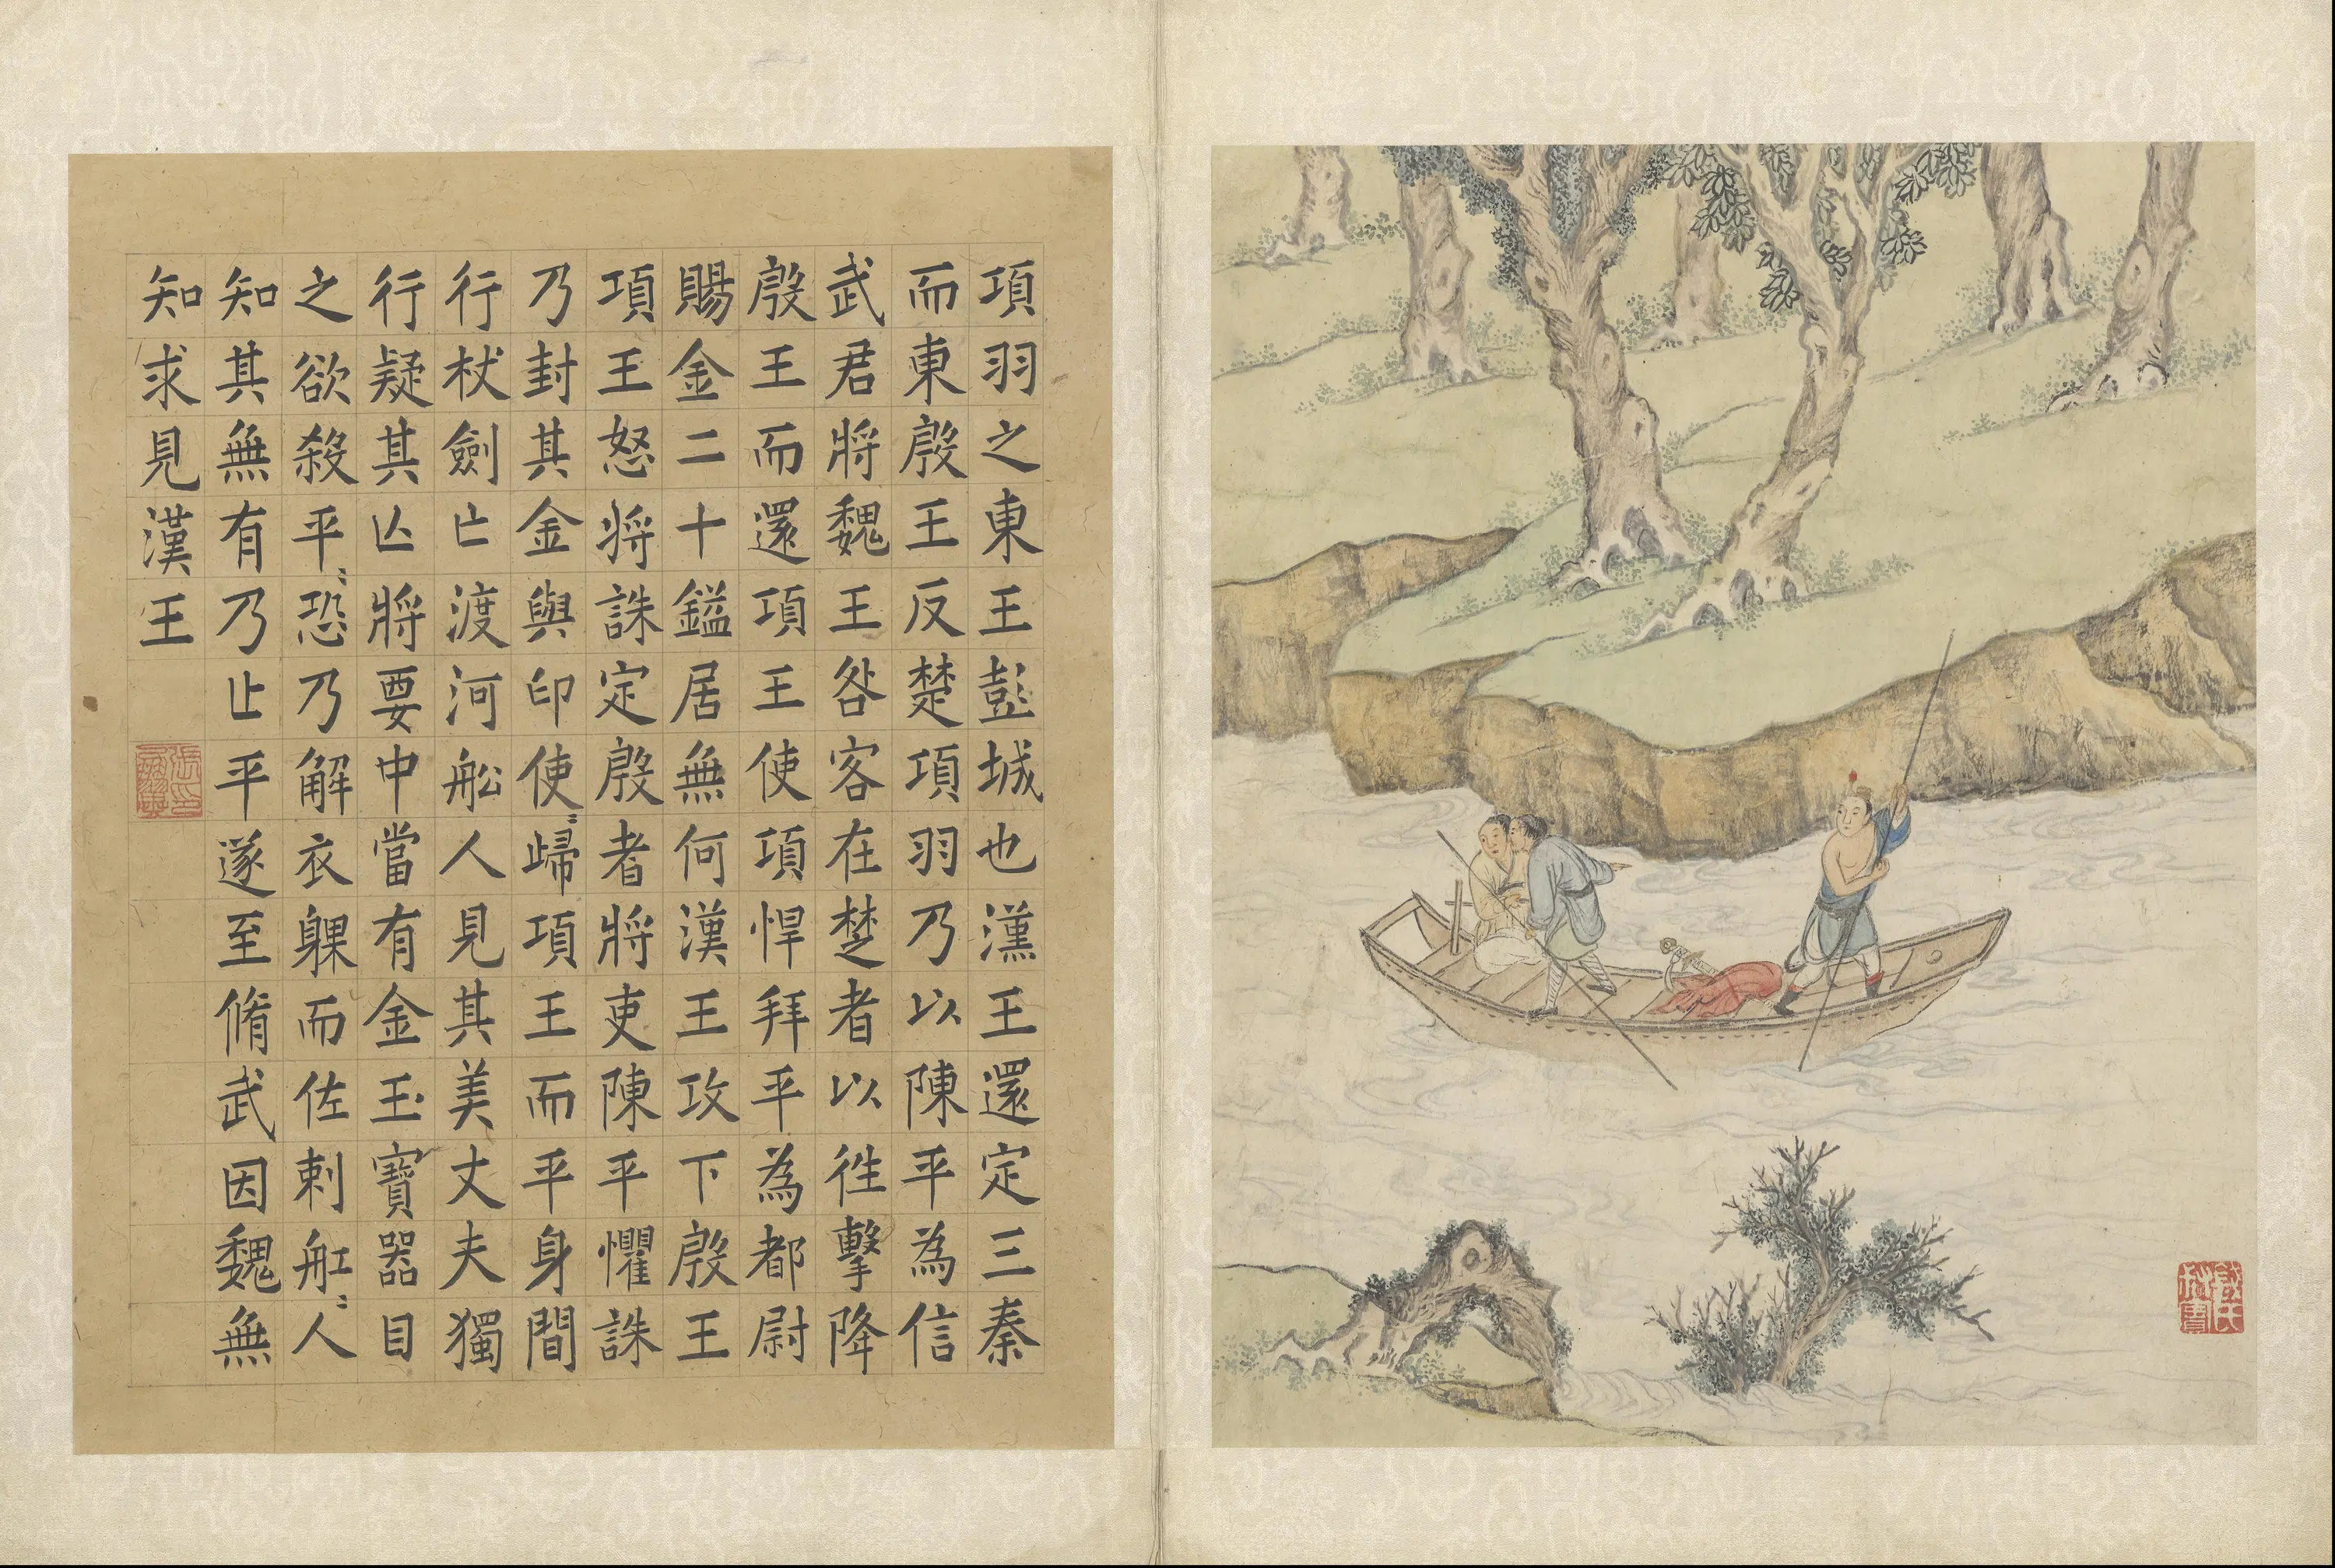 項羽之東王彭城也漢王還定三秦
而東殷王反楚項羽乃以陳平為信
武君將魏王咎客在楚者以徃擊降
殷王而還項王使項悍拜平為都尉
賜金二十鎰居無何漢王攻下殷王
項王怒將誅定殷者將吏陳平懼誅
乃封其金與印使〻歸項王而平身間
行杖劍亡渡河舩人見其美丈夫獨
行疑其亾將要中當有金玉寶器目
之欲殺平〻恐乃解衣躶而佐刺舡〻人
知其無有乃止平遂至脩武因魏無
知求見漢王